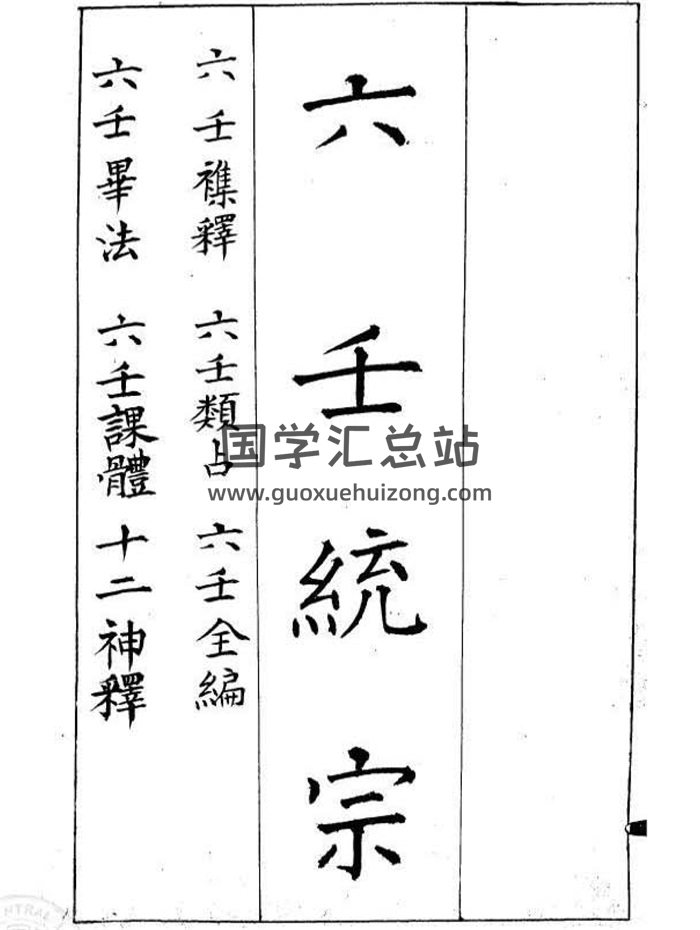 六壬統宗
六壬襍釋 六壬類占 六壬全編
六壬畢法 六壬課體 十二神釋
国学汇总站
www.guoxuehuizong.com
NTRAL